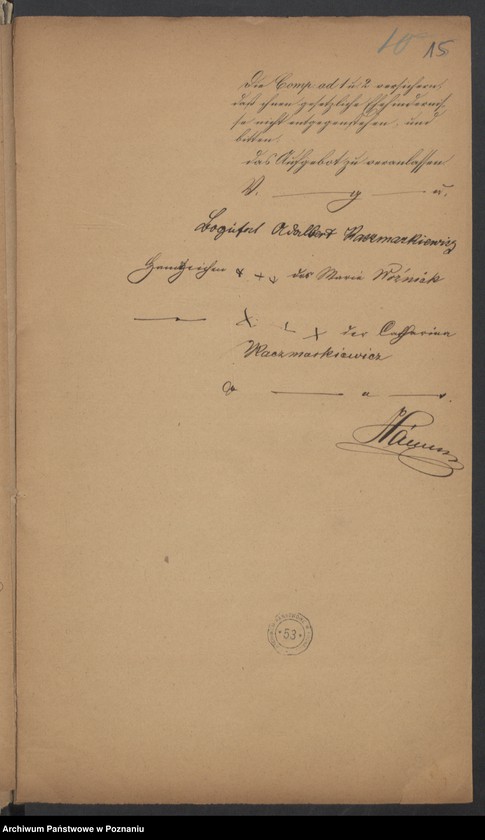 10 15
Die Comp. ad 1 u 2 versichern,
daß ihnen gesetzliche Ehehindernis-
se nicht entgegenstehen, und
bitten,
das Aufgebot zu veranlassen
V. g. u.
Adalbert Kaczmarkiewicz
Handzeichen + + + des Marie Woźniak
X X der Catharina
Kaczmarkiewicz
a.
53
Archiwum Państwowe w Poznaniu